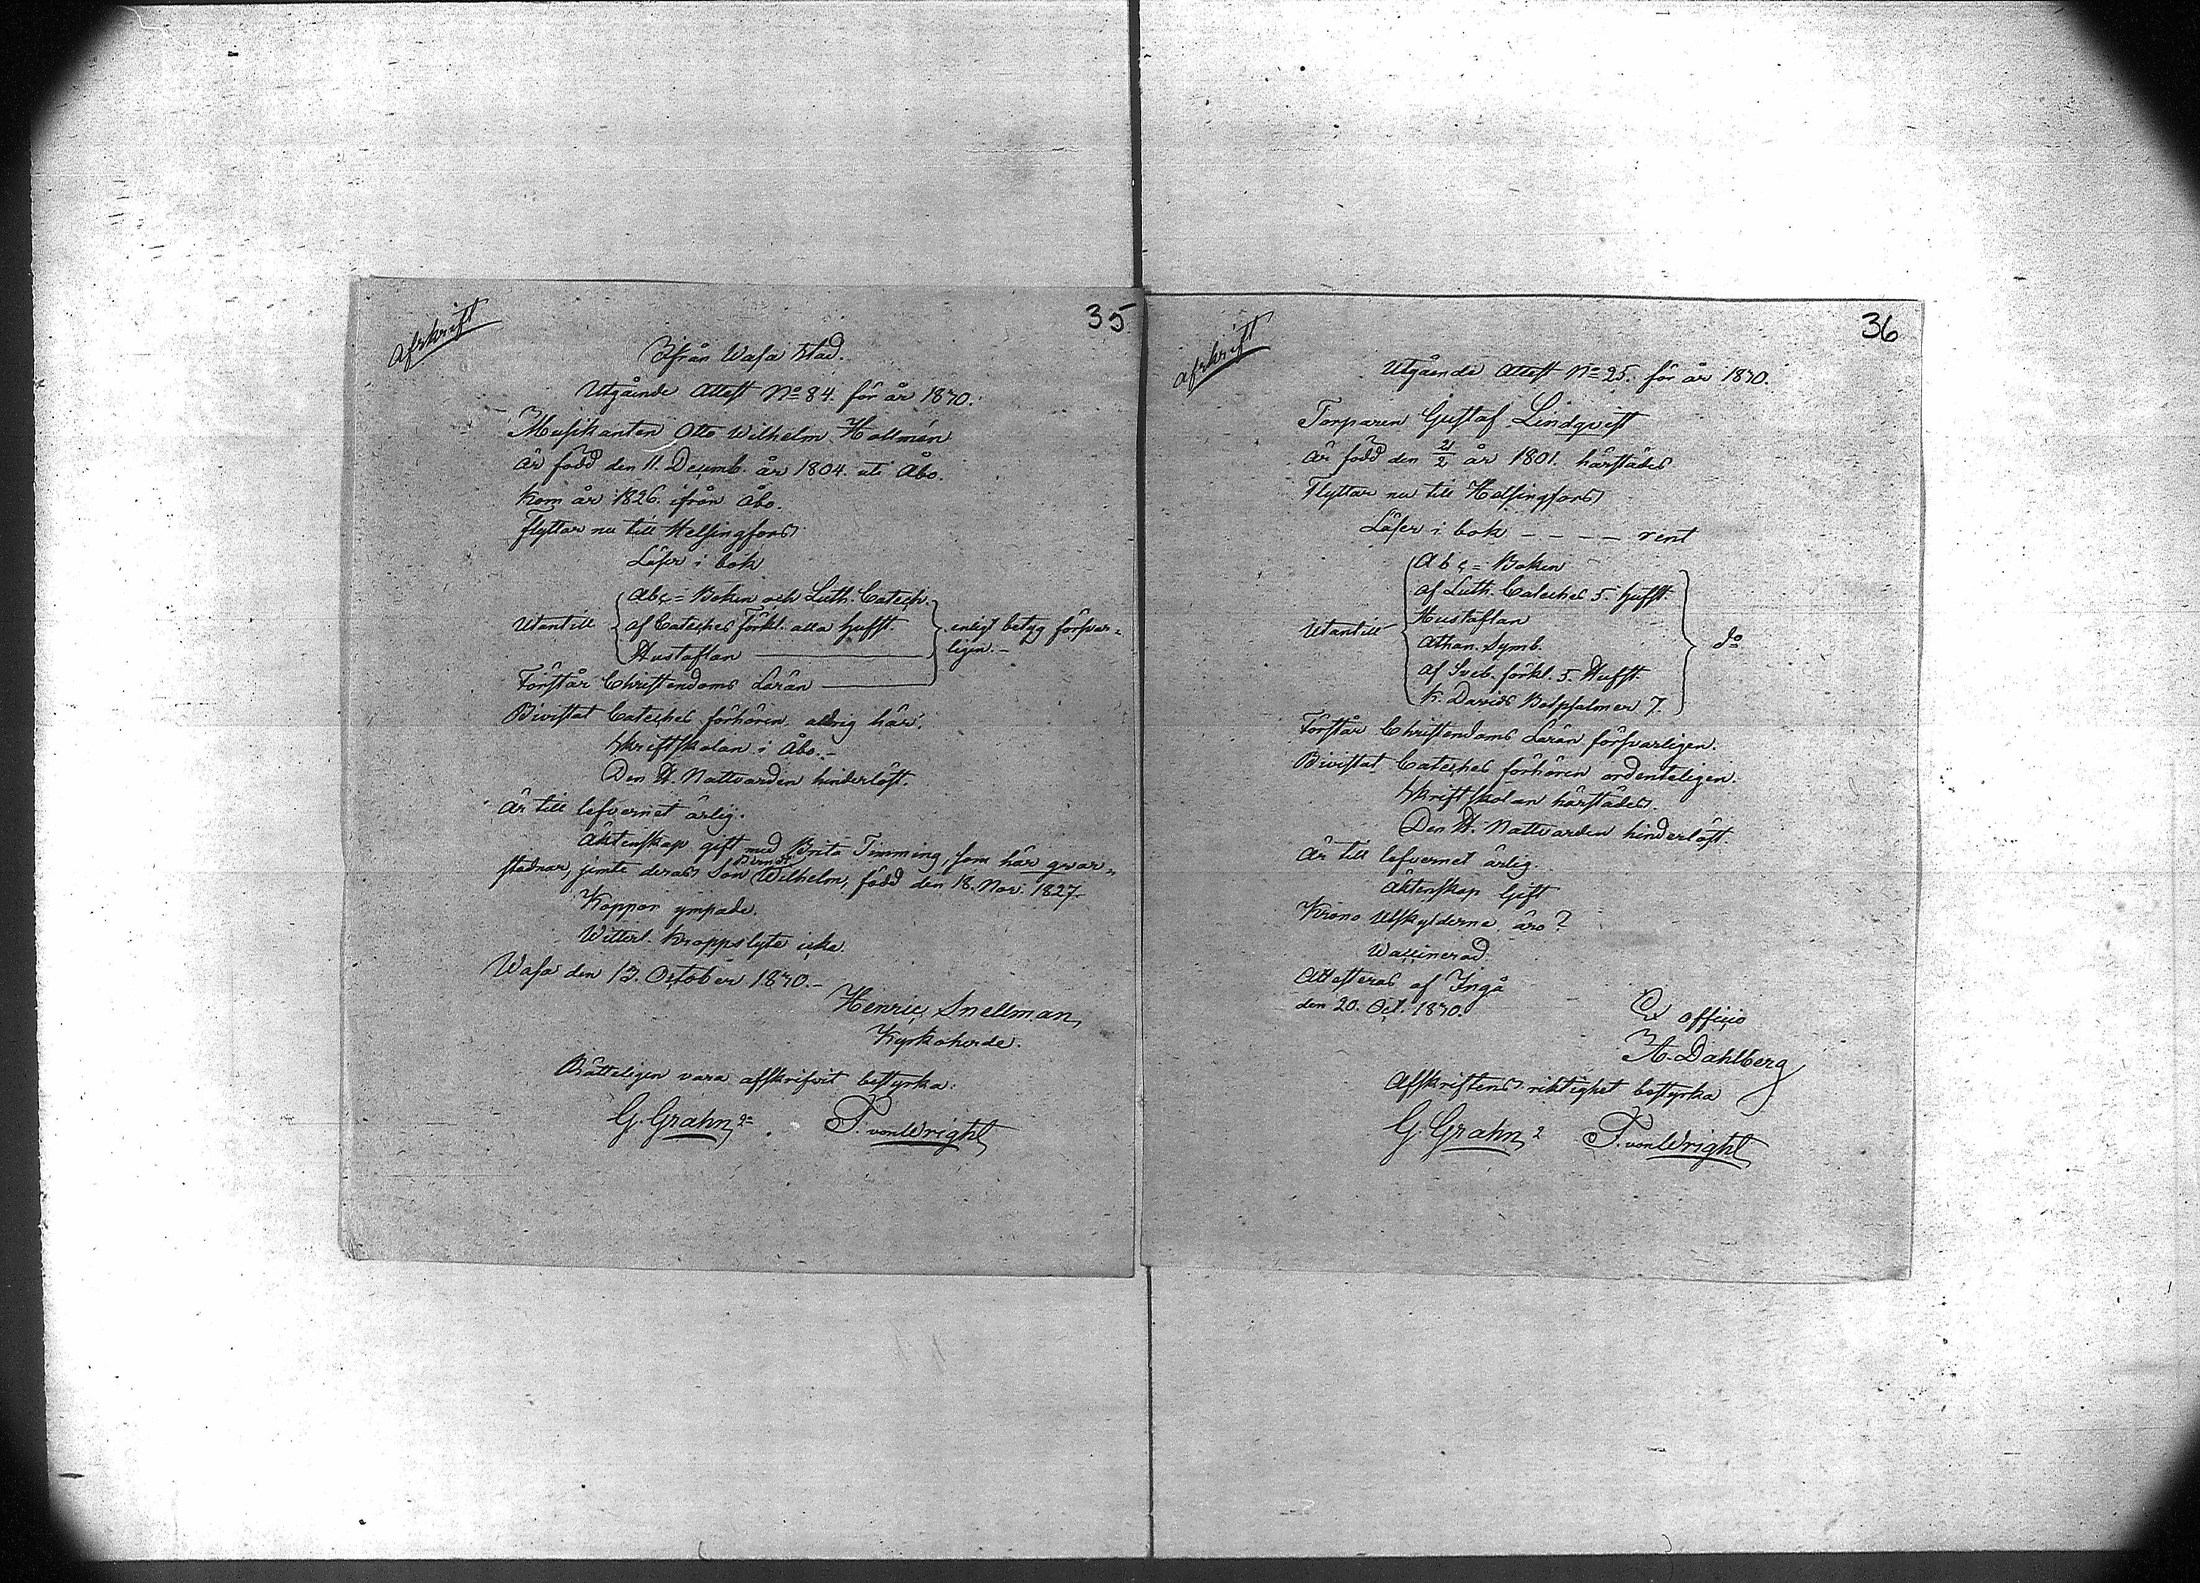 Afskrift
35
Ifrån Wasa stad.
Utgående Attest No 84. för år 1830.
Musikanten Otto Wilhelm Hollmén
är född den 11. Decemb. år 1804. uti Åbo.
kom år 1826. ifrån Åbo.
flyttar nu till Helsingfors
Läser i bok
Abc= Boken och Luth. Catech.
Utantill af Cateches förkl. alla hufst. enligt betyg försvar=
Hustaflan ligen.-
Förstår Christendoms Läran
Bivistat Cateches förhören aldrig här.
Skriftskolan i Åbo.-
Den H. Nattvarden hinderlöst.
Är till lefvernet ärlig.
Äktenskap gift med Brita Timming, som här qvar=
stadnar, jemte deras Son Wilhelm, född den 18. Nov. 1827.
Koppor ympade.
Witterl. kroppslyte icke.
Wasa den 13. October 1830.-
Henric Snellman,
Kyrkoherde.
Rätteligen vara afskrifvit bestyrka:
G. Grahn 2= . P. von Wright
Afskrift
36
Utgående Attest No 25. för år 1830.
Torparen Gustaf Lindqvist
är född den 21/2 år 1801. härstädes
Flyttar nu till Helsingfors
Läser i bok - - - - rent
Abc= Boken
af Luth. Cateches 5. hufst.
Hustaflan
Utantill Athan. Symb. do
af Sveb. förkl. 5. Hufst.
K. Davids Botpsalmer 7.
Förstår Christendoms Läran försvarligen.
Bivistat Cateches förhören ordenteligen.
Skriftskolan härstädes.
Den H. Nattvarden hinderlöst.
Är till lefvernet ärlig.
Äktenskap Gift
Krono Utskylderne äro?
Waccinerad.
Attesteras af Ingå
den 20. Oct. 1830.
Ex officio
A. Dahlberg
Afskriftens riktighet bestyrka
G. Grahn 2 P. von Wright